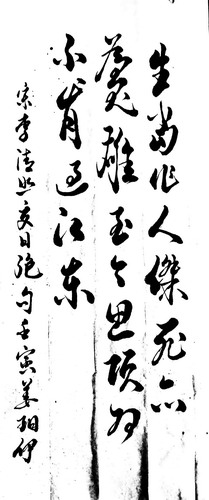 生当作人傑死亦
為鬼雄至今思项羽
不肯过江东
宋李清照夏日绝句壬寅姜相伊